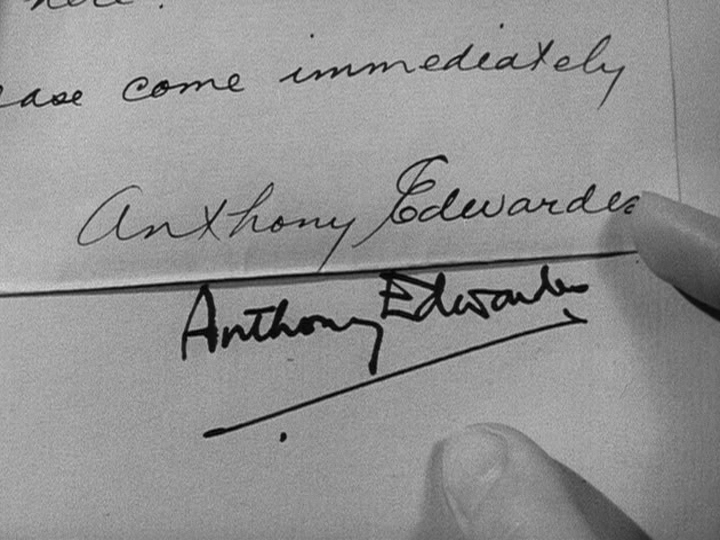 here.
ease come immediately
Anthony Edwardes
Anthony Edwardes